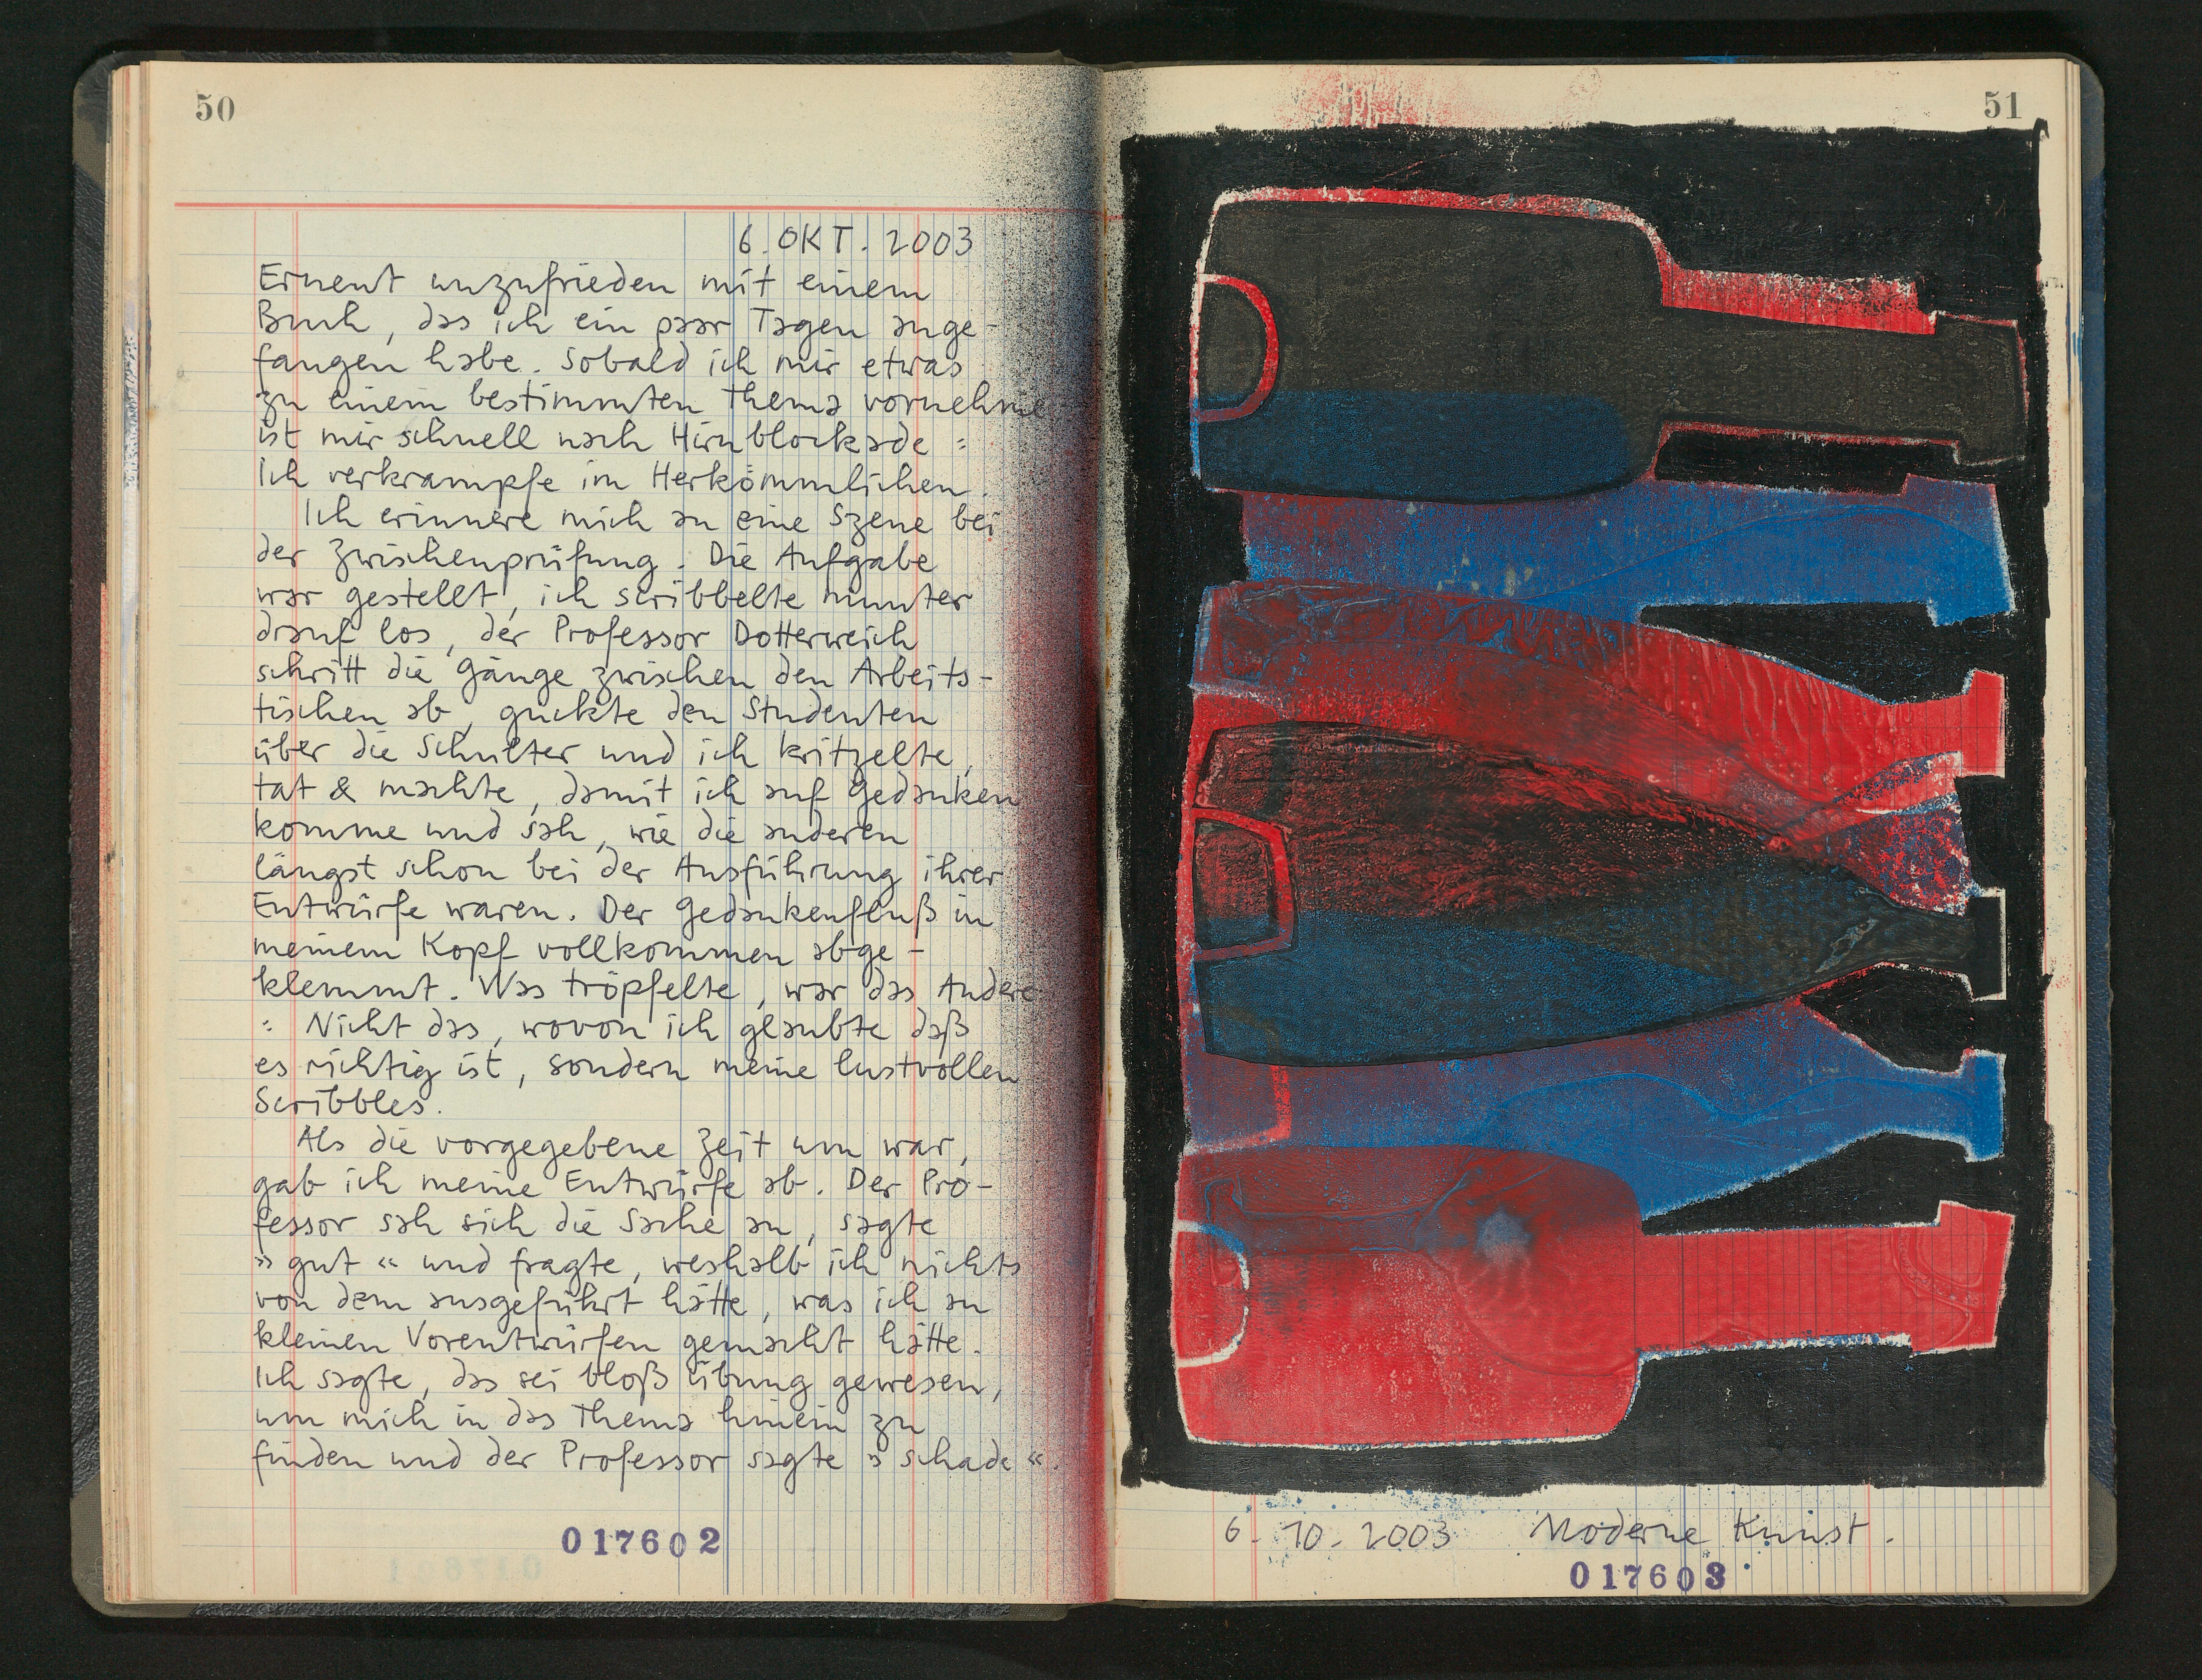 50
6. OKT. 2003
Erneut unzufrieden mit einem
Buch, das ich ein paar Tagen ange-
fangen habe. Sobald ich mir etwas
zu einem bestimmten Thema vornehme
ist mir schnell nach Hirnblockade :
Ich verkrampfe im Herkömmlichen.
Ich erinnere mich an eine Szene bei
der Zwischenprüfung. Die Aufgabe
war gestellt, ich scribbelte munter
drauf los, der Professor Dotterweich
schritt die Gänge zwischen den Arbeits-
tischen ab, guckte den Studenten
über die Schulter und ich kritzelte,
tat & machte, damit ich auf Gedanken
komme und sah, wie die anderen
längst schon bei der Ausführung ihrer
Entwürfe waren. Der Gedankenfluß in
meinem Kopf vollkommen abge-
klemmt. Was tröpfelte, war das Andere
: Nicht das, wovon ich glaubte daß
es richtig ist, sondern meine lustvollen
Scribbles.
Als die vorgegebene Zeit um war,
gab ich meine Entwürfe ab. Der Pro-
fessor sah sich die Sache an, sagte
»gut« und fragte, weshalb ich nichts
von dem ausgeführt hätte, was ich an
kleinen Vorentwürfen gemacht hätte.
Ich sagte, das sei bloß Übung gewesen,
um mich in das Thema hinein zu
finden und der Professor sagte »schade«.
017602
51
6. 10. 2003 Moderne Kunst.
017603